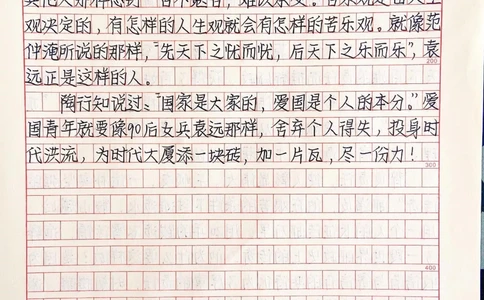 观决定的，有怎样的人生观就会有怎样的苦乐观。就像范
仲淹所说的那样，“先天下之忧而忧，后天下之乐而乐”，袁
远正是这样的人。
200
陶行知说过：“国家是大家的，爱国是个人的本分。”爱
国青年就要像90后女兵袁远那样，舍弃个人得失，投身时
代洪流，为时代大厦添一块砖，加一片瓦，尽一份力！
300
400